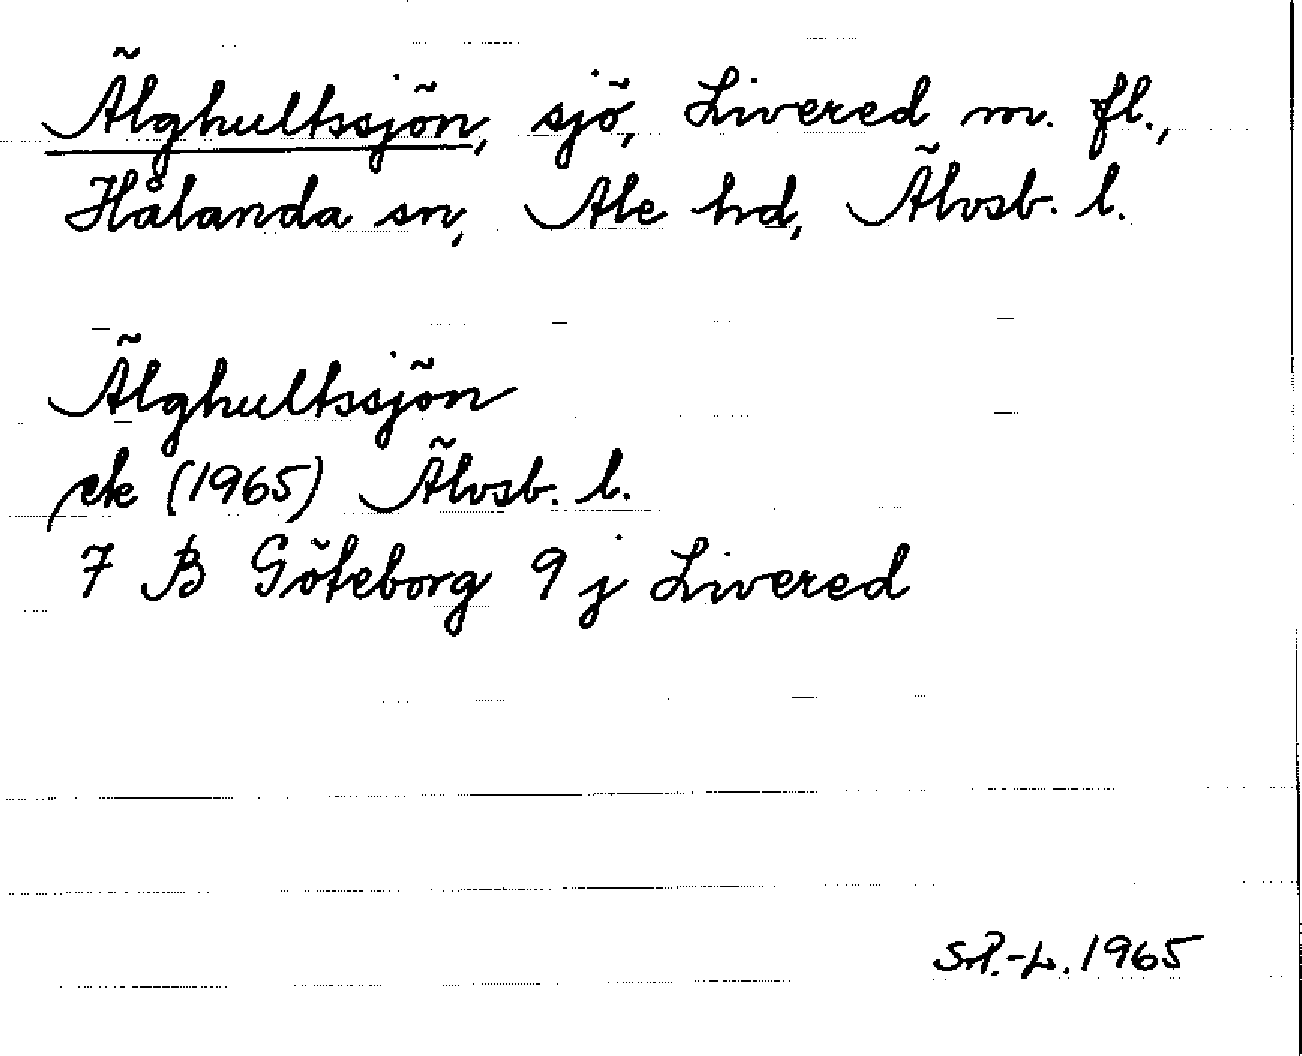 Älghultssjön, sjö, Livered m. fl.,
Hålanda sn, Ale hd, Älvsb. l.
Älghultssjön
ek (1965) Älvsb. l.
7 B Göteborg 9 j Livered
1965